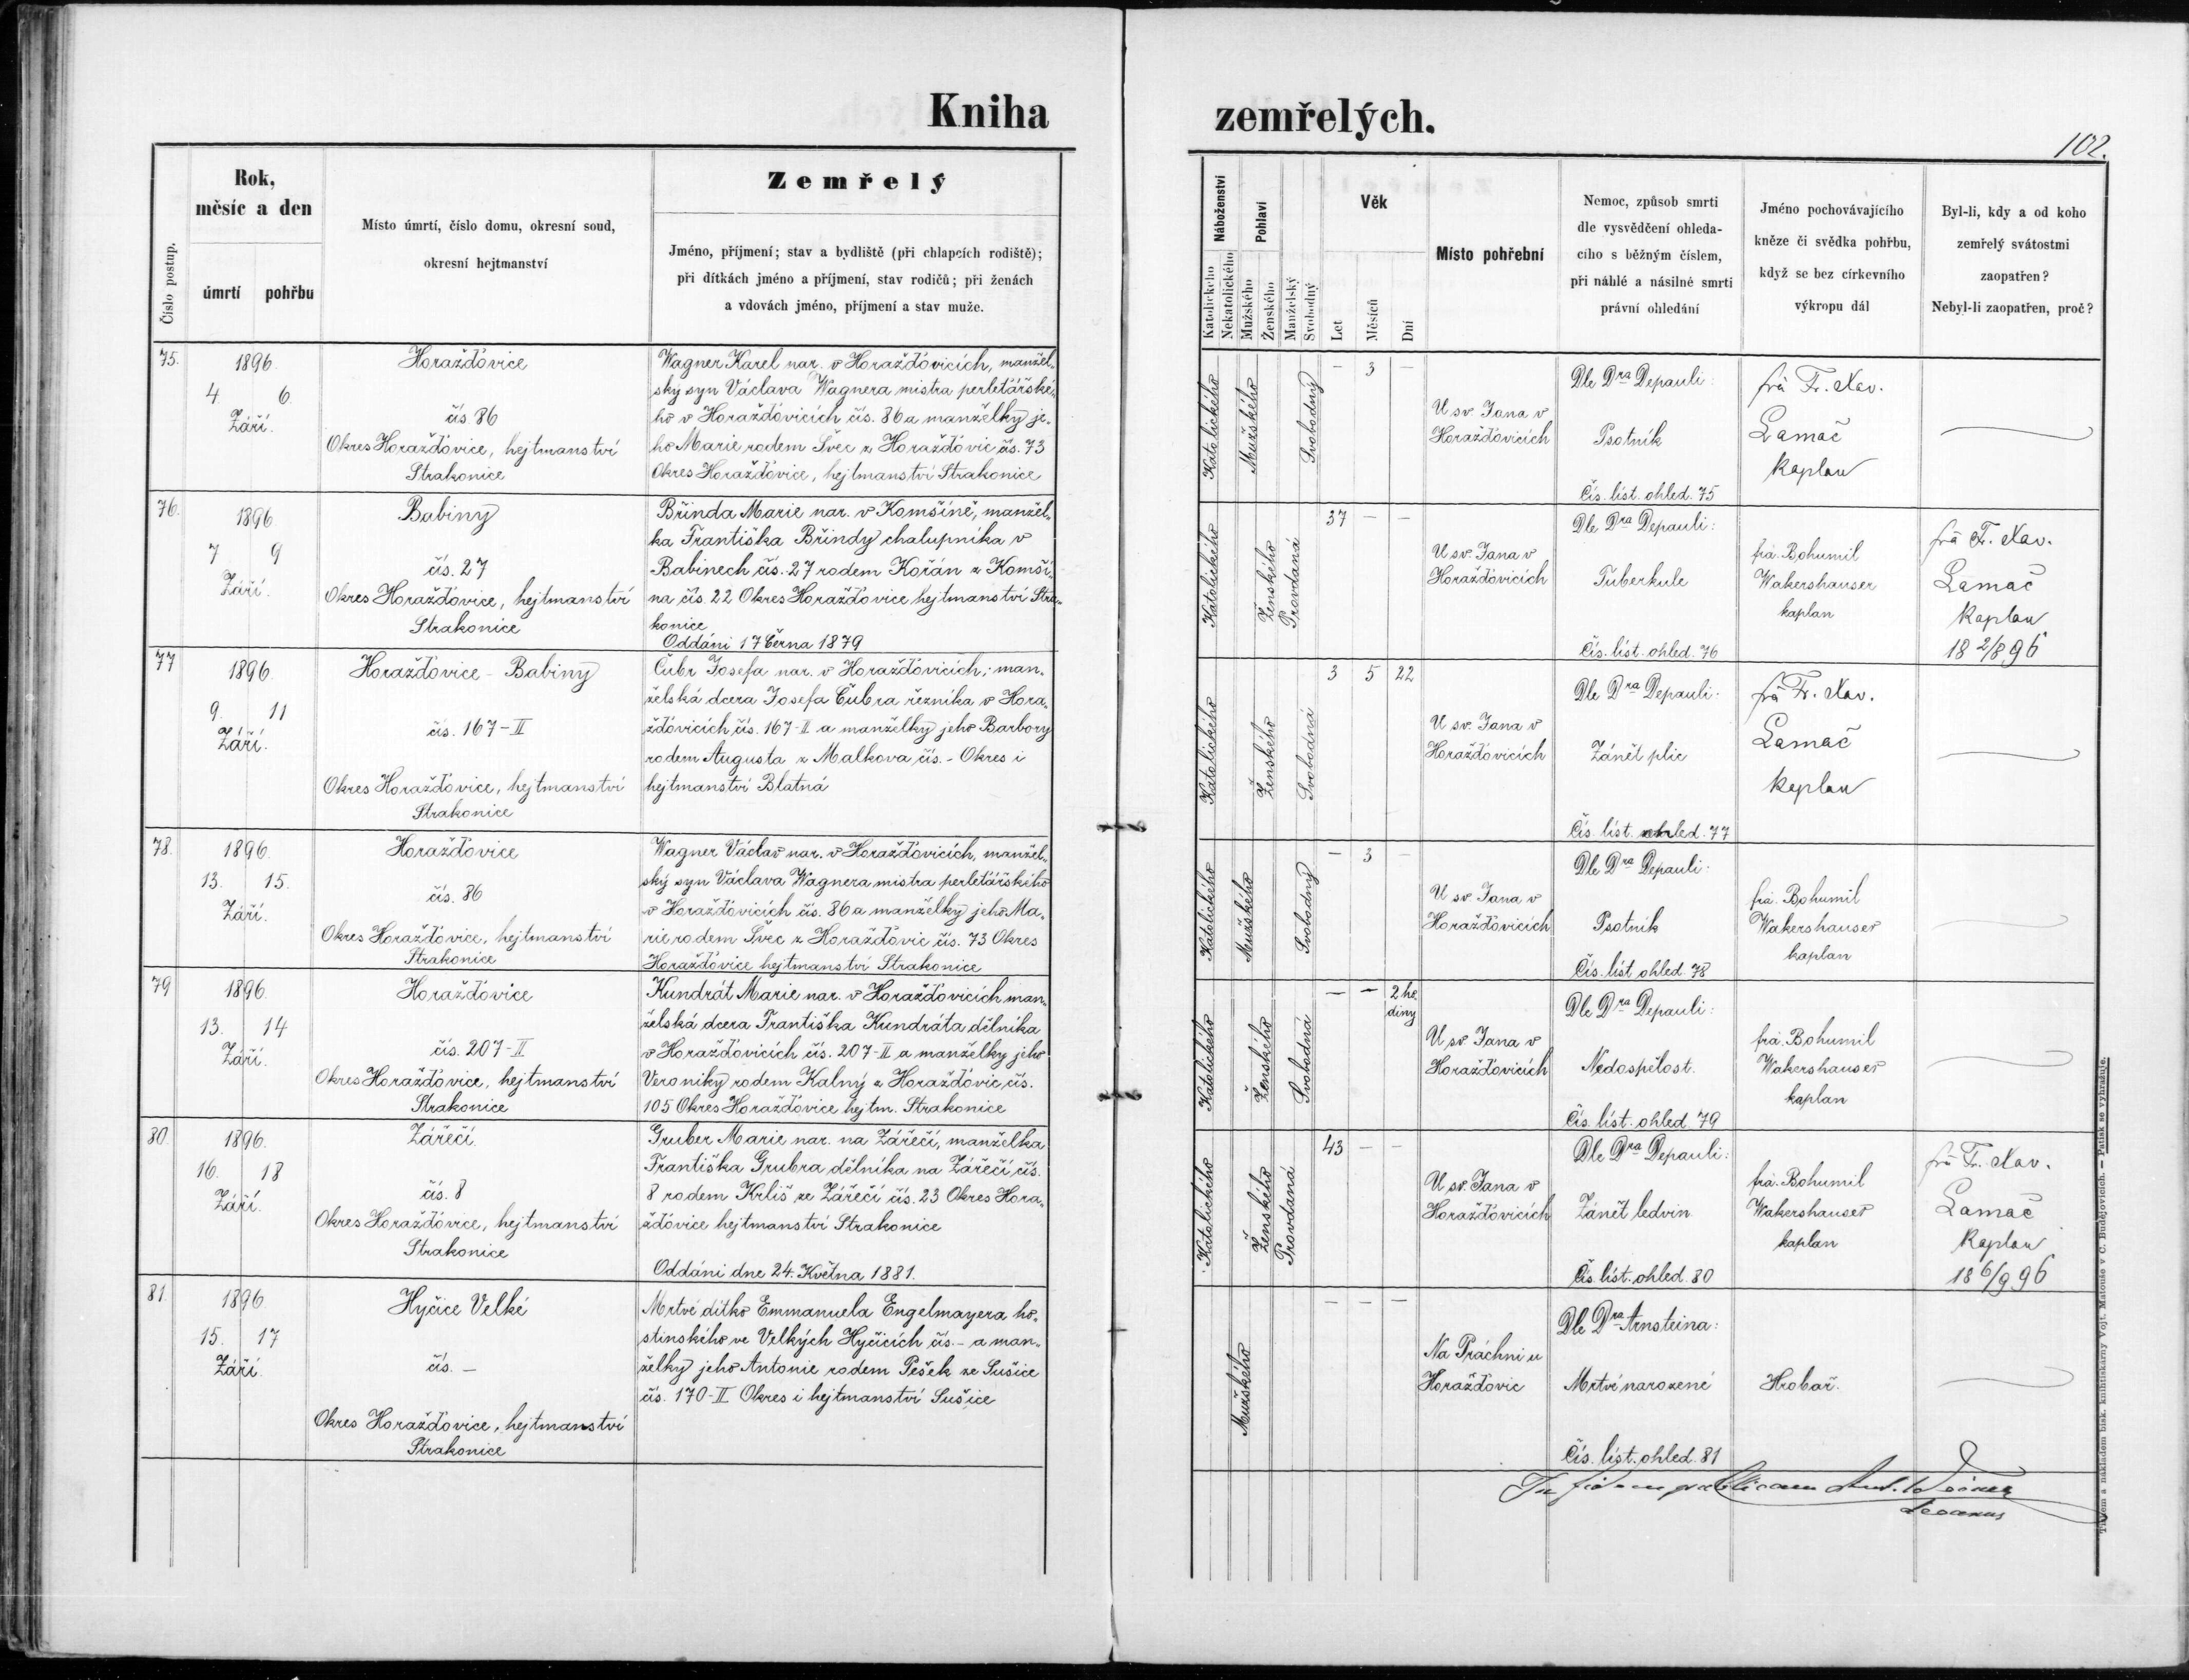 Kniha
zemřelých.
102.
Číslo postup.
Rok,
měsíc a den
úmrtí pohřbu
Místo úmrtí, číslo domu, okresní soud,
okresní hejtmanství
Zemřelý
Jméno, příjmení; stav a bydliště (při chlapcích rodiště);
při dítkách jméno a příjmení, stav rodičů; při ženách
a vdovách jméno, příjmení a stav muže.
Náboženství
Katolického
Nekatolického
Pohlaví
Mužského
Ženského
Manželský
Svobodný
Věk
Let
Měsíců
Dní
Místo pohřební
Nemoc, způsob smrti
dle vysvědčení ohleda-
cího s běžným číslem,
při náhlé a násilné smrti
právní ohledání
Jméno pochovávajícího
kněze či svědka pohřbu,
když se bez církevního
výkropu dál
Byl-li, kdy a od koho
zemřelý svátostmi
zaopatřen?
Nebyl-li zaopatřen, proč?
75.
1896.
4. 6.
Září.
Horažďovice
čís 86
Okres Horažďovice, hejtmanství
Strakonice
Wagner Karel nar. v Horažďovicích, manžel-
ský syn Václava Wagnera mistra perleťářské-
ho v Horažďovicích čís. 86 a manželky je-
ho Marie rodem Švec z Horažďovic čís. 73
Okres Horažďovice, hejtmanství Strakonice
Katolického
Mužského
Svobodný
- 3 -
U sv. Jana v
Horažďovicích
Dle Dra Depauli:
Psotník
Čís. list. ohled. 75
frá Fr. Xav.
Lamač
kaplan
76.
1896
7 9
Září.
Babiny
čís. 27
Okres Horažďovice, hejtmanství
Strakonice
Břinda Marie nar. v Komšíně, manžel-
ka Františka Břindy chalupníka v
Babinech čís. 27 rodem Kořán z Komší-
na čís. 22 Okres Horažďovice hejtmanství Stra-
konice
Oddáni 17 Černa 1879
Katolického
Ženského
Provdaná
37 - -
U sv. Jana v
Horažďovicích
Dle Dra Depauli:
Tuberkule
Čís. list. ohled. 76
frá. Bohumil
Wakershauser
kaplan
frá Fr. Xav.
Lamač
kaplan
18 2/8 96
77
1896.
9. 11
Září.
Horažďovice - Babiny
čís. 167-II
Okres Horažďovice, hejtmanství
Strakonice
Čubr Josefa nar. v Horažďovicích; man-
želská dcera Josefa Čubra řezníka v Hora-
žďovicích čís. 167-II a manželky jeho Barbory
rodem Augusta z Malkova čís. - Okres i
hejtmanství Blatná
Katolického
Ženského
Svobodná
3 5 22
U sv. Jana v
Horažďovicích
Dle Dra Depauli:
Zánět plic
Čís. list. ohled. 77
frá Fr. Xav.
Lamač
kaplan
78.
1896.
13. 15.
Září.
Horažďovice
čís. 86
Okres Horažďovice, hejtmanství
Strakonice
Wagner Václav nar. v Horažďovicích, manžel-
ský syn Václava Wagnera mistra perleťářského
v Horažďovicích čís. 86 a manželky jeho Ma-
rie rodem Švec z Horažďovic čís. 73 Okres
Horažďovice hejtmanství Strakonice
Katolického
Mužského
Svobodný
- 3 -
U sv. Jana v
Horažďovicích
Dle Dra Depauli:
Psotník
Čís. list ohled 78
frá. Bohumil
Wakershauser
kaplan
79
1896.
13. 14
Září.
Horažďovice
čís. 207-II
Okres Horažďovice, hejtmanství
Strakonice
Kundrát Marie nar. v Horažďovicích man-
želská dcera Františka Kundráta dělníka
v Horažďovicích čís. 207-II a manželky jeho
Veroniky rodem Kalný z Horažďovic, čís.
105 Okres Horažďovice hejtm. Strakonice
Katolického
Ženského
Svobodná
- - 2 ho
diny
U sv. Jana v
Horažďovicích
Dle Dra Depauli:
Nedospělost.
Čís. list. ohled. 79
frá. Bohumil
Wakershauser
kaplan
80.
1896.
16. 18
Září.
Zářečí
čís. 8
Okres Horažďovice, hejtmanství
Strakonice
Gruber Marie nar. na Zářečí, manželka
Františka Grubra dělníka na Zářečí čís.
8 rodem Krliš ze Zářečí čís. 23 Okres Hora-
žďovice hejtmanství Strakonice
Oddáni dne 24. Května 1881.
Katolického
Ženského
Provdaná
43 - -
U sv. Jana v
Horažďovicích
Dle Dra Depauli:
Zánět ledvin
Čís. list. ohled. 80
frá. Bohumil
Wakershauser
kaplan
frá Fr. Xav.
Lamač
kaplan
18 6/9 96
81.
1896
15. 17
Září
Hyčice Velké
čís. -
Okres Horažďovice, hejtmanství
Strakonice
Mrtvé dítko Emmanuela Engelmayera ho-
stinského ve Velkých Hyčicích čís. - a man-
želky jeho Antonie rodem Pešek ze Sušice
čís. 170-II Okres i hejtmanství Sušice
Mužského
- - -
Na Práchni u
Horažďovic
Dle Dra Arnsteina:
Mrtvě narozené
Čís. list. ohled. 81
Hrobař.
In fidem publicam Ant.
decanus
Tiskem a nákladem bisk. knihtiskárny Vojt. Matouše v Č. Budějovicích. — Patisk se vyhražuje.